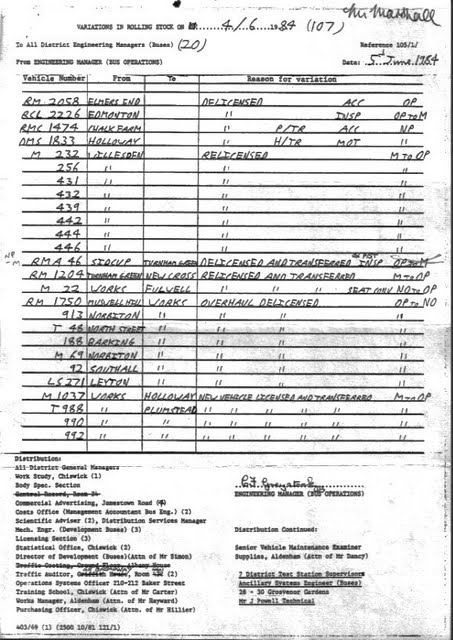 Mr Marshall
VARIATIONS IN ROLLING STOCK ON 4/6 1984 (107)
To All District Engineering Managers (Buses) (20) Reference 105/1/
From ENGINEERING MANAGER (BUS OPERATIONS) Date: 5th June 1984
Vehicle Number From To Reason for variation
RM 2058 ELMERS END DELICENSED ACC OP
RCL 2226 EDMONTON " INSP OP TO M
RMC 1474 CHALK FARM " P/TR ACC NP
DMS 1833 HOLLOWAY " H/TR MOT "
M 232 WILLESDEN RELICENSED M TO OP
256 " " "
431 " " "
432 " " "
439 " " "
442 " " "
444 " " "
446 " " "
RMA 46 SIDCUP TURNHAM GREEN DELICENSED AND TRANSFERRED INSP OP TO M
RM 1204 TURNHAM GREEN NEW CROSS RELICENSED AND TRANSFERRED M TO OP
M 22 WORKS FULWELL " " " SEAT CONV NO TO OP
RM 1750 MUSWELL HILL WORKS OVERHAUL DELICENSED OP TO NO
913 NORBITON " " " "
T 48 NORTH STREET " " " "
188 BARKING " " " "
M 69 NORBITON " " " "
92 SOUTHALL " " " "
LS 271 LEYTON " " " "
M 1037 WORKS HOLLOWAY NEW VEHICLE LICENSED AND TRANSFERRED M TO OP
T 988 " PLUMSTEAD " " " " " "
990 " " " " " " " "
992 " " " " " " " "
Distribution:
All District General Managers
Work Study, Chiswick (1)
Body Spec. Section
Central Record, Room 34
ENGINEERING MANAGER (BUS OPERATIONS)
Commercial Advertising, Jamestown Road (4)
Costs Office (Management Accountant Bus Eng.) (2)
Scientific Adviser (2), Distribution Services Manager
Mech. Engr. (Development Buses) (3) Distribution Continued:
Licensing Section (3)
Statistical Office, Chiswick (2) Senior Vehicle Maintenance Examiner
Director of Development (Buses) (Attn of Mr Simon) Supplies, Aldenham (Attn of Mr Dancy)
Traffic Costing, Ground Floor, Albany House
Traffic Auditor, Griffith House, Room (2) 7 District Test Station Supervisors
Operations Systems Officer 210-212 Baker Street Ancillary Systems Engineer (Buses)
Training School, Chiswick (Attn of Mr Carter) 28 - 30 Grosvenor Gardens
Works Manager, Aldenham (Attn of Mr Hayward) Mr J Powell Technical
Purchasing Officer, Chiswick (Attn of Mr Hillier)
403/69 (1) (2500 10/81 121/1)